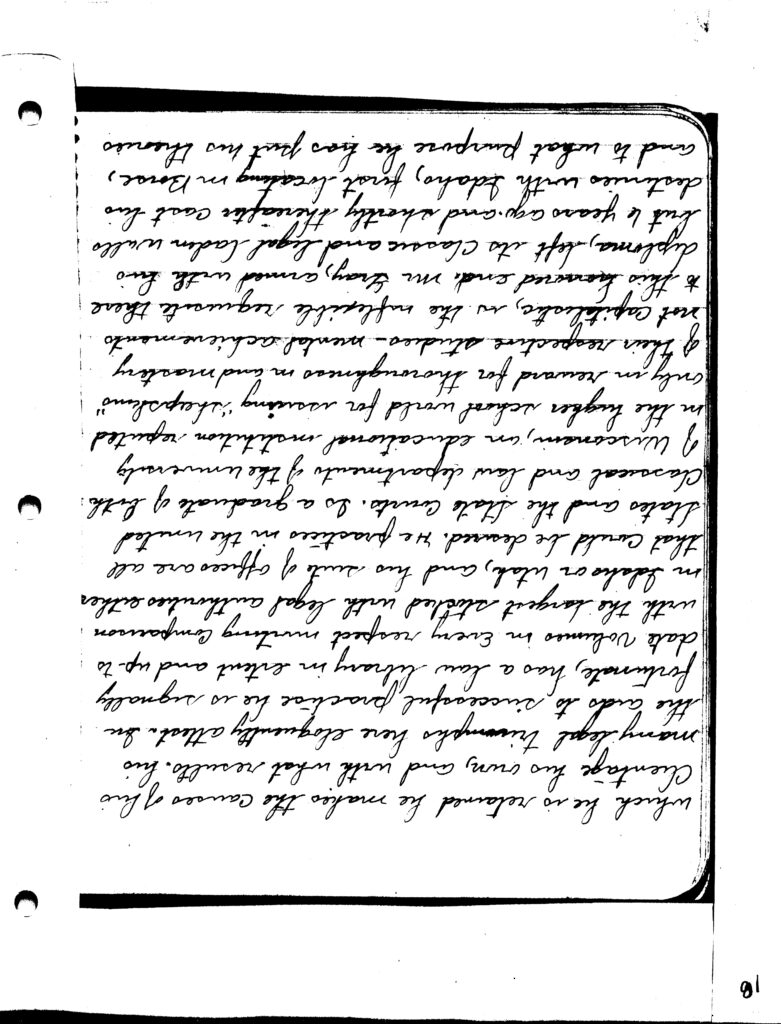 which he is retained he makes the causes of his
Clientage his own, and with what results. his
many legal triumphs here eloquently attest. In
the aids to successful practice he is signally
fortunate, has a law library in extent and up-to-
date Volumes in Every respect inviting Comparison
with the largest stocked with legal authorities either
in Idaho or Utah, and his suite of offices are all
that Could be desired. He practices in the United
States and the State Courts. Is a graduate of both
Classical and law departments of the University
of Wisconsin, an educational institution reputed
in the higher school world for issuing "sheepskins"
only in reward for thoroughness in and mastery
of their respective studies - mental achievements
not Capitalistic, is the inflexible requisite there
to this honored end. Mr Gray, armed with his
diploma, left its Classic and legal laden walls
but 6 years ago. and shortly thereafter Cast his
destinies with Idaho, first locating in Boise,
and to what purpose he has put his theories
18